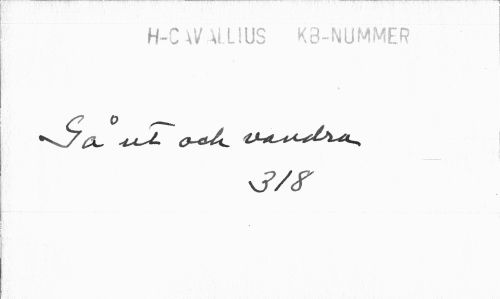 H-CAVALLIUS KB-NUMMER
Gå ut och vandra
318